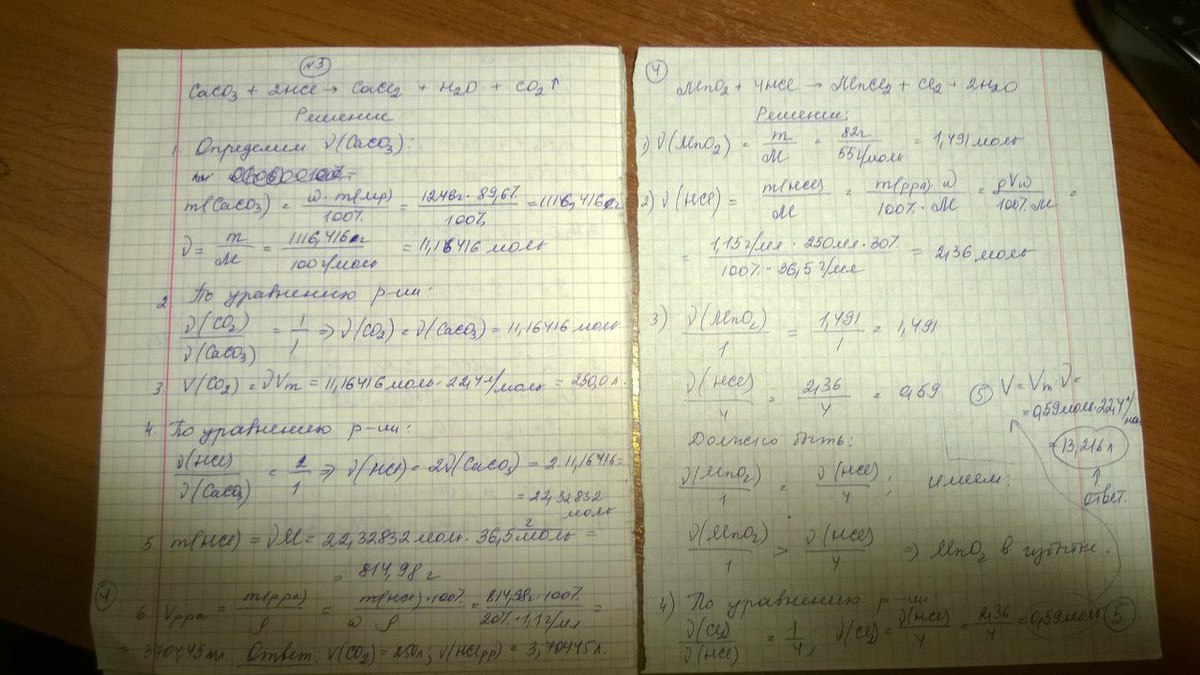 №3
CaCO3 + 2HCl → CaCl2 + H2O + CO2↑
Решение
1. Определим ν(CaCO3):
m(CaCO3) = ω · m(пр) / 100% = 1246г · 89,6% / 100% = 1116,416 г
ν = m / M = 1116,416 г / 100 г/моль = 11,16416 моль
2. По уравнению р-ии:
ν(CO2) / ν(CaCO3) = 1 / 1 ⇒ ν(CO2) = ν(CaCO3) = 11,16416 моль
3. V(CO2) = νVm = 11,16416 моль · 22,4 л/моль = 250,0 л.
4. По уравнению р-ии:
ν(HCl) / ν(CaCO3) = 2 / 1 ⇒ ν(HCl) = 2ν(CaCO3) = 2 · 11,16416 =
= 22,32832 моль
5. m(HCl) = νM = 22,32832 моль · 36,5 г/моль =
= 814,98 г
6. Vрра = m(рра) / ρ = m(HCl) · 100% / ω ρ = 814,98г · 100% / 20% · 1,1 г/мл =
= 3704,45 мл. Ответ: V(CO2) = 250л; V(HClрр) = 3,70445 л.
4
4
MnO2 + 4HCl → MnCl2 + Cl2 + 2H2O
Решение:
1) ν(MnO2) = m / M = 82г / 55г/моль = 1,491 моль
2) ν(HCl) = m(HCl) / M = m(рра) · ω / 100% · M = ρVω / 100% · M =
= 1,15 г/мл · 250мл · 30% / 100% · 36,5 г/мл = 2,36 моль
3) ν(MnO2) / 1 = 1,491 / 1 = 1,491
ν(HCl) / 4 = 2,36 / 4 = 0,59
Должно быть:
ν(MnO2) / 1 = ν(HCl) / 4 ; имеем:
ν(MnO2) / 1 > ν(HCl) / 4 ⇒ MnO2 в избытке.
4) По уравнению р-ии:
ν(Cl2) / ν(HCl) = 1 / 4; ν(Cl2) = ν(HCl) / 4 = 2,36 / 4 = 0,59моль 5
5 V = Vm · ν =
= 0,59моль · 22,4 л/мол
= 13,216 л
↑
ответ.